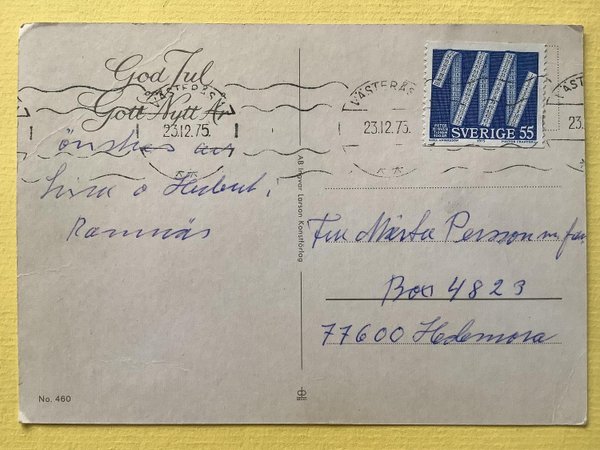 God Jul
Gott Nytt År
VÄSTERÅS
23.12.75
VÄSTERÅS
23.12.75
23.12
SVERIGE 55
önskas av
o Herbert,
Ramnäs
AB Ingvar Larson Konstförlag
Fru Märta Persson m fam
Box 4823
77600 Hedemora
No. 460